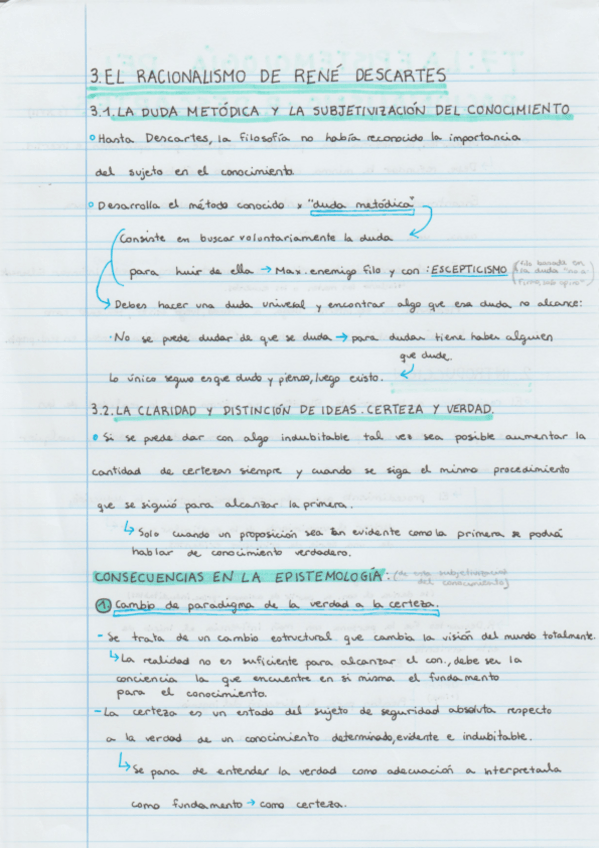 3. EL RACIONALISMO DE RENÉ DESCARTES
3.1. LA DUDA METÓDICA Y LA SUBJETIVIZACIÓN DEL CONOCIMIENTO
Hasta Descartes, la filosofía no había reconocido la importancia
del sujeto en el conocimiento
Desarrolla el método conocido x "duda metódica"
Consiste en buscar voluntariamente la duda
para huir de ella → Max. enemigo filo y con : ESCEPTICISMO
Debes hacer una duda universal y encontrar algo que esa duda no alcance:
· No se puede dudar de que se duda → para dudar tiene haber alguien
que dude.
Lo único seguro es que dudo y pienso, luego existo.
3.2. LA CLARIDAD Y DISTINCIÓN DE IDEAS. CERTEZA Y VERDAD.
Si se puede dar con algo indubitable tal vez sea posible aumentar la
cantidad de certezas siempre y cuando se siga el mismo procedimiento
que se siguió para alcanzar la primera.
Solo cuando un proposición sea tan evidente como la primera se podrá
hablar de conocimiento verdadero.
CONSECUENCIAS EN LA EPISTEMOLOGÍA: (de esa subjetivización
del conocimiento)
1. Cambio de paradigma de la verdad a la certeza.
- Se trata de un cambio estructural que cambia la visión del mundo totalmente.
La realidad no es suficiente para alcanzar el con., debe ser la
conciencia la que encuentre en si misma el fundamento
para el conocimiento.
- La certeza es un estado del sujeto de seguridad absoluta respecto
a la verdad de un conocimiento determinado, evidente e indubitable.
Se pasa de entender la verdad como adecuación a interpretarla
como fundamento → como certeza.